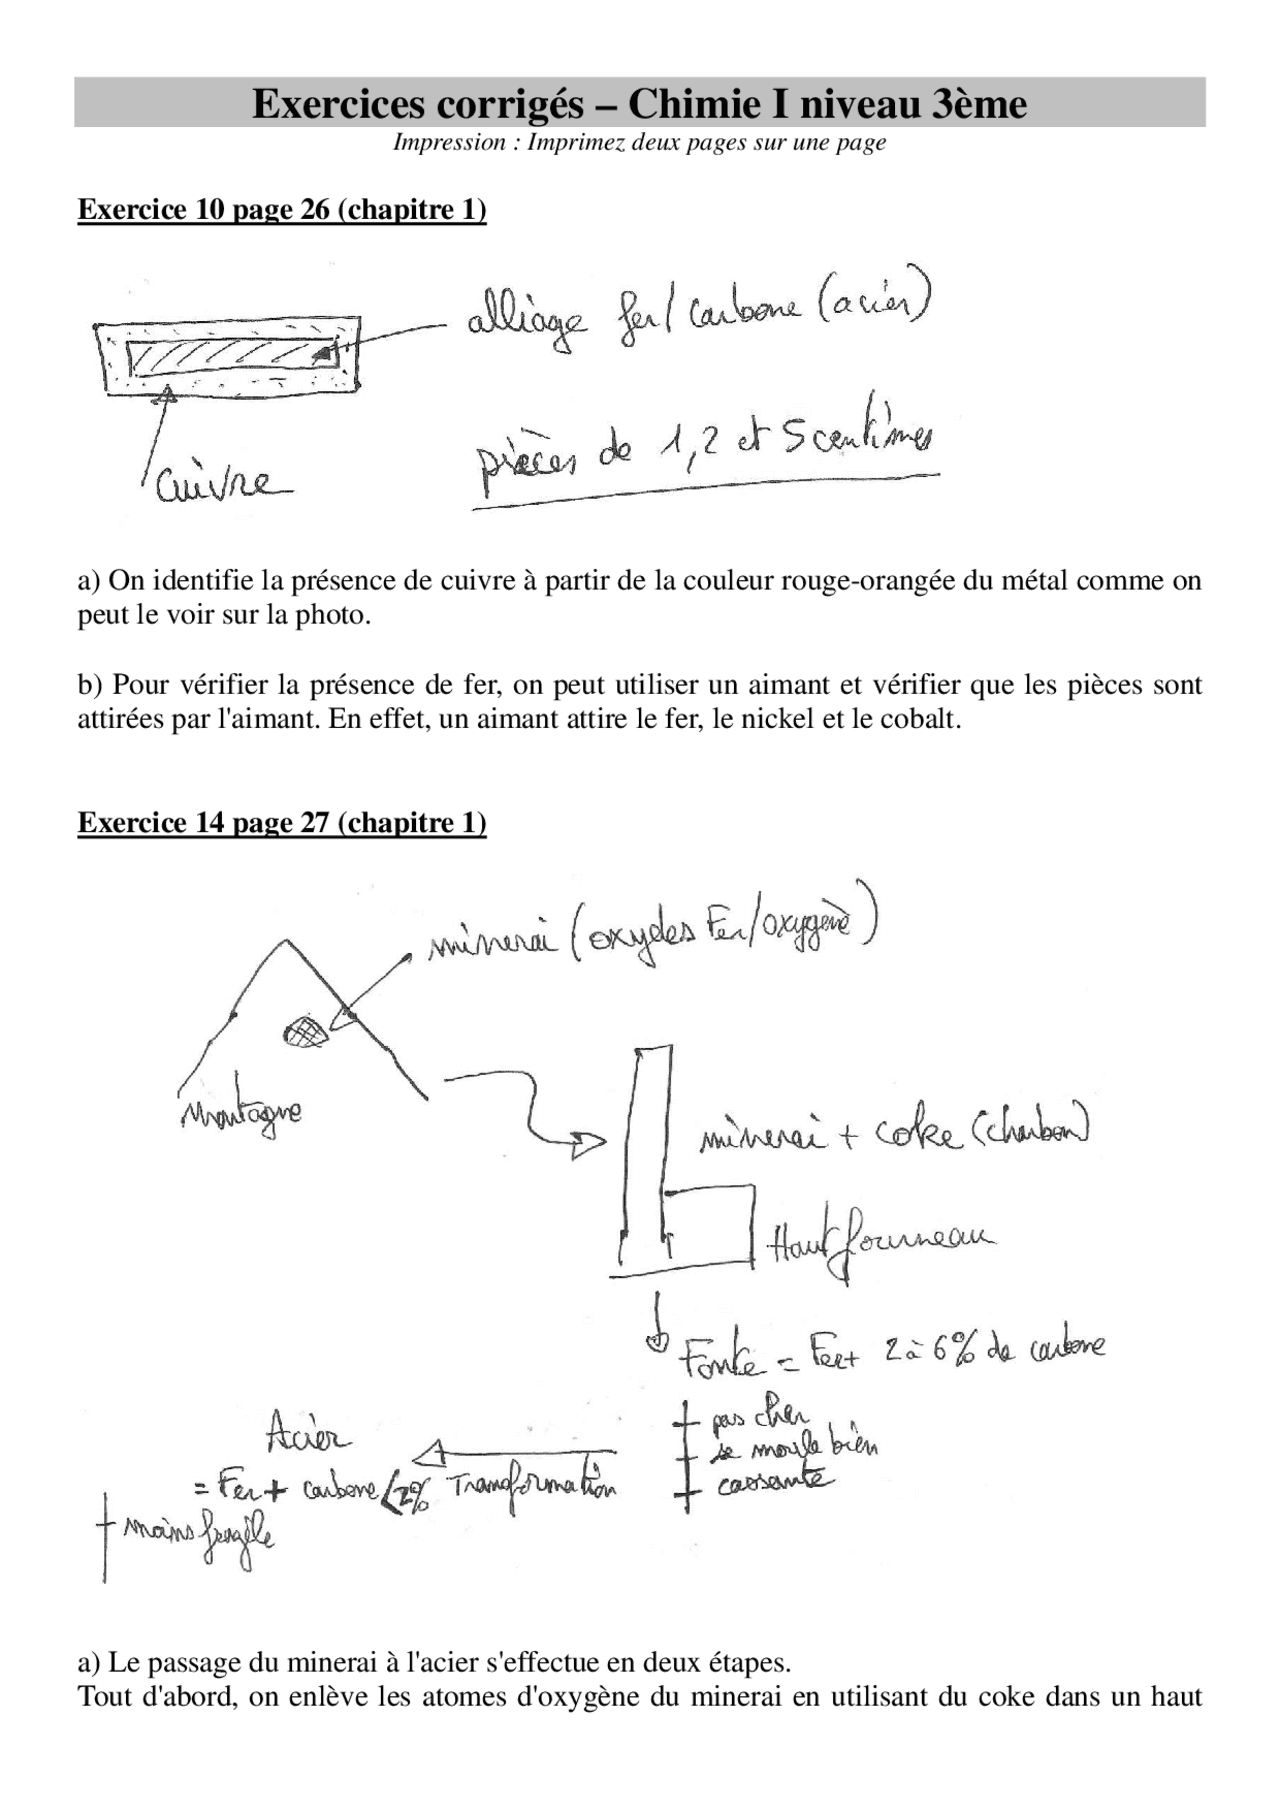 Exercices corrigés – Chimie I niveau 3ème
Impression : Imprimez deux pages sur une page
Exercice 10 page 26 (chapitre 1)
alliage fer/carbone (acier)
cuivre
pièces de 1,2 et 5 centimes
a) On identifie la présence de cuivre à partir de la couleur rouge-orangée du métal comme on
peut le voir sur la photo.
b) Pour vérifier la présence de fer, on peut utiliser un aimant et vérifier que les pièces sont
attirées par l'aimant. En effet, un aimant attire le fer, le nickel et le cobalt.
Exercice 14 page 27 (chapitre 1)
minerai (oxydes Fer/oxygène)
Montagne
minerai + coke (charbon)
Haut fourneau
Fonte = Fer + 2 à 6% de carbone
pas cher
se moule bien
cassante
Transformation
Acier
= Fer + carbone <2%
moins fragile
a) Le passage du minerai à l'acier s'effectue en deux étapes.
Tout d'abord, on enlève les atomes d'oxygène du minerai en utilisant du coke dans un haut